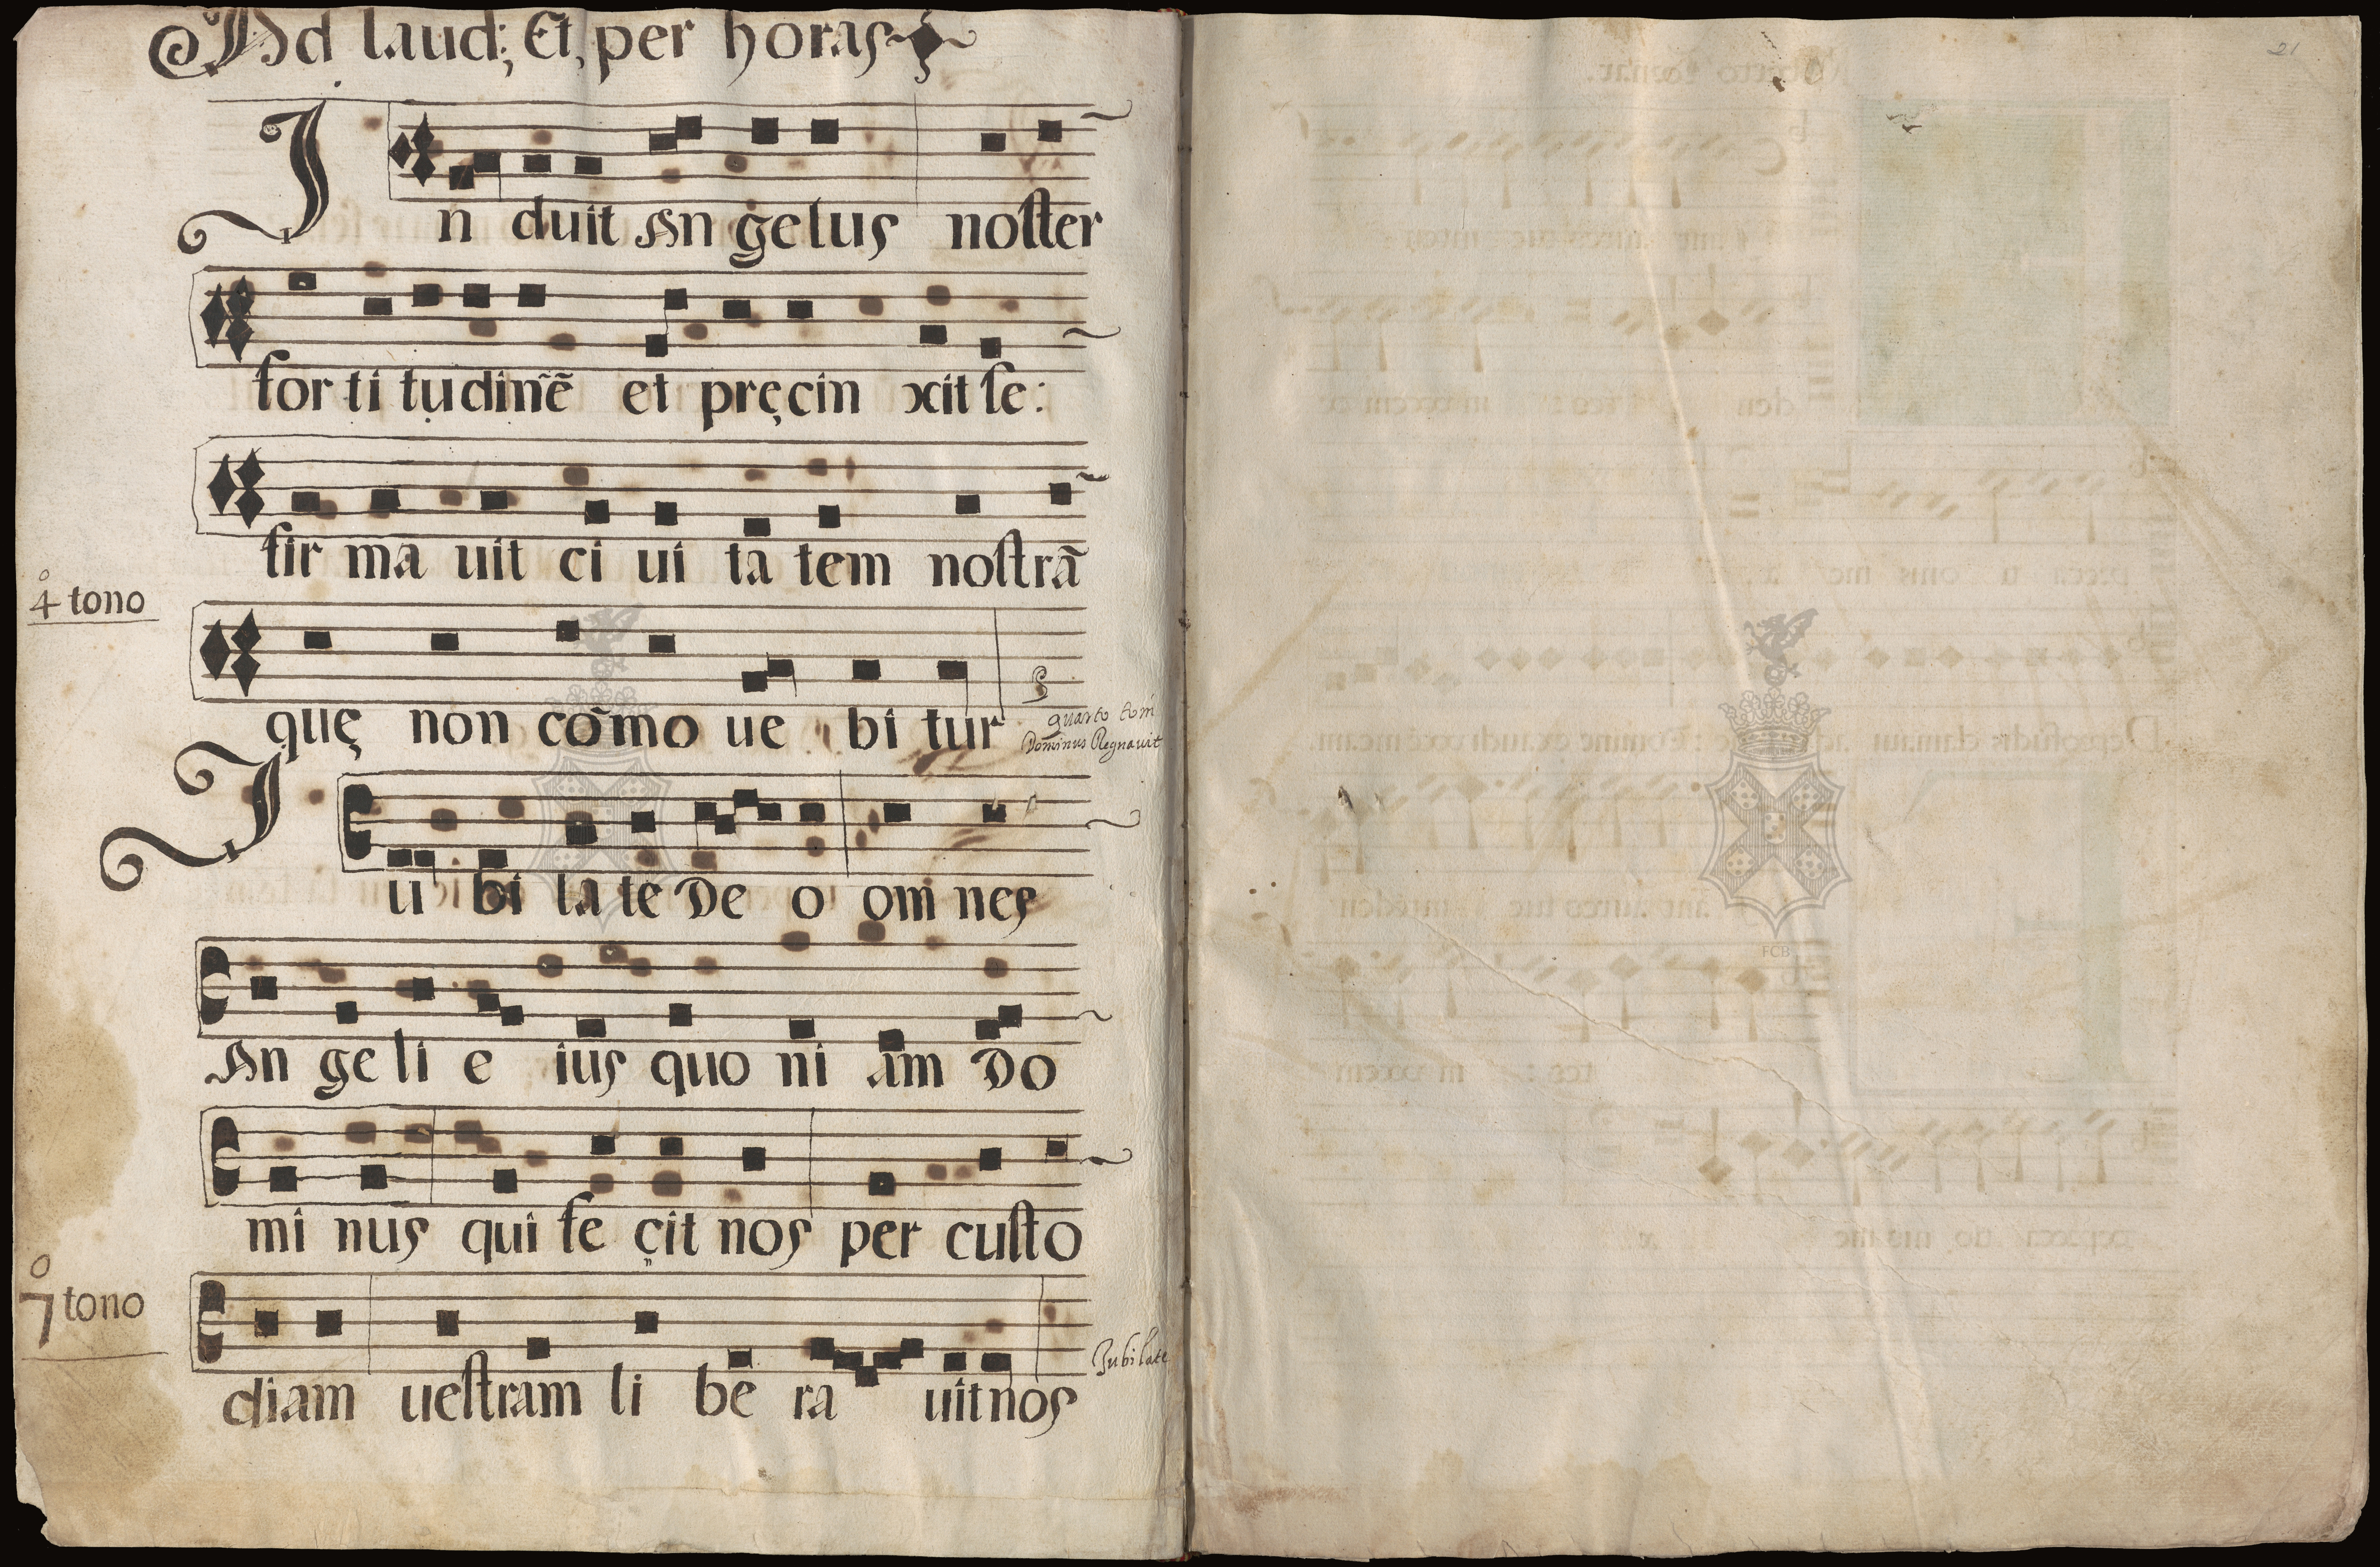 Ad laud; Et, per horas
In duit An gelus noster
for ti tudinē et pręcin xit se:
fir ma uit ci ui ta tem nostrā
4º tono
quę non cōmo ue bi tur
quarto toni
Dominus Regnavit
Iu bi la te De o om nes
An ge li e ius quo ni am Do
mi nus qui fe çit nos per custo
7º tono
diam uestram li be ra uit nos
Jubilate
21
FCB